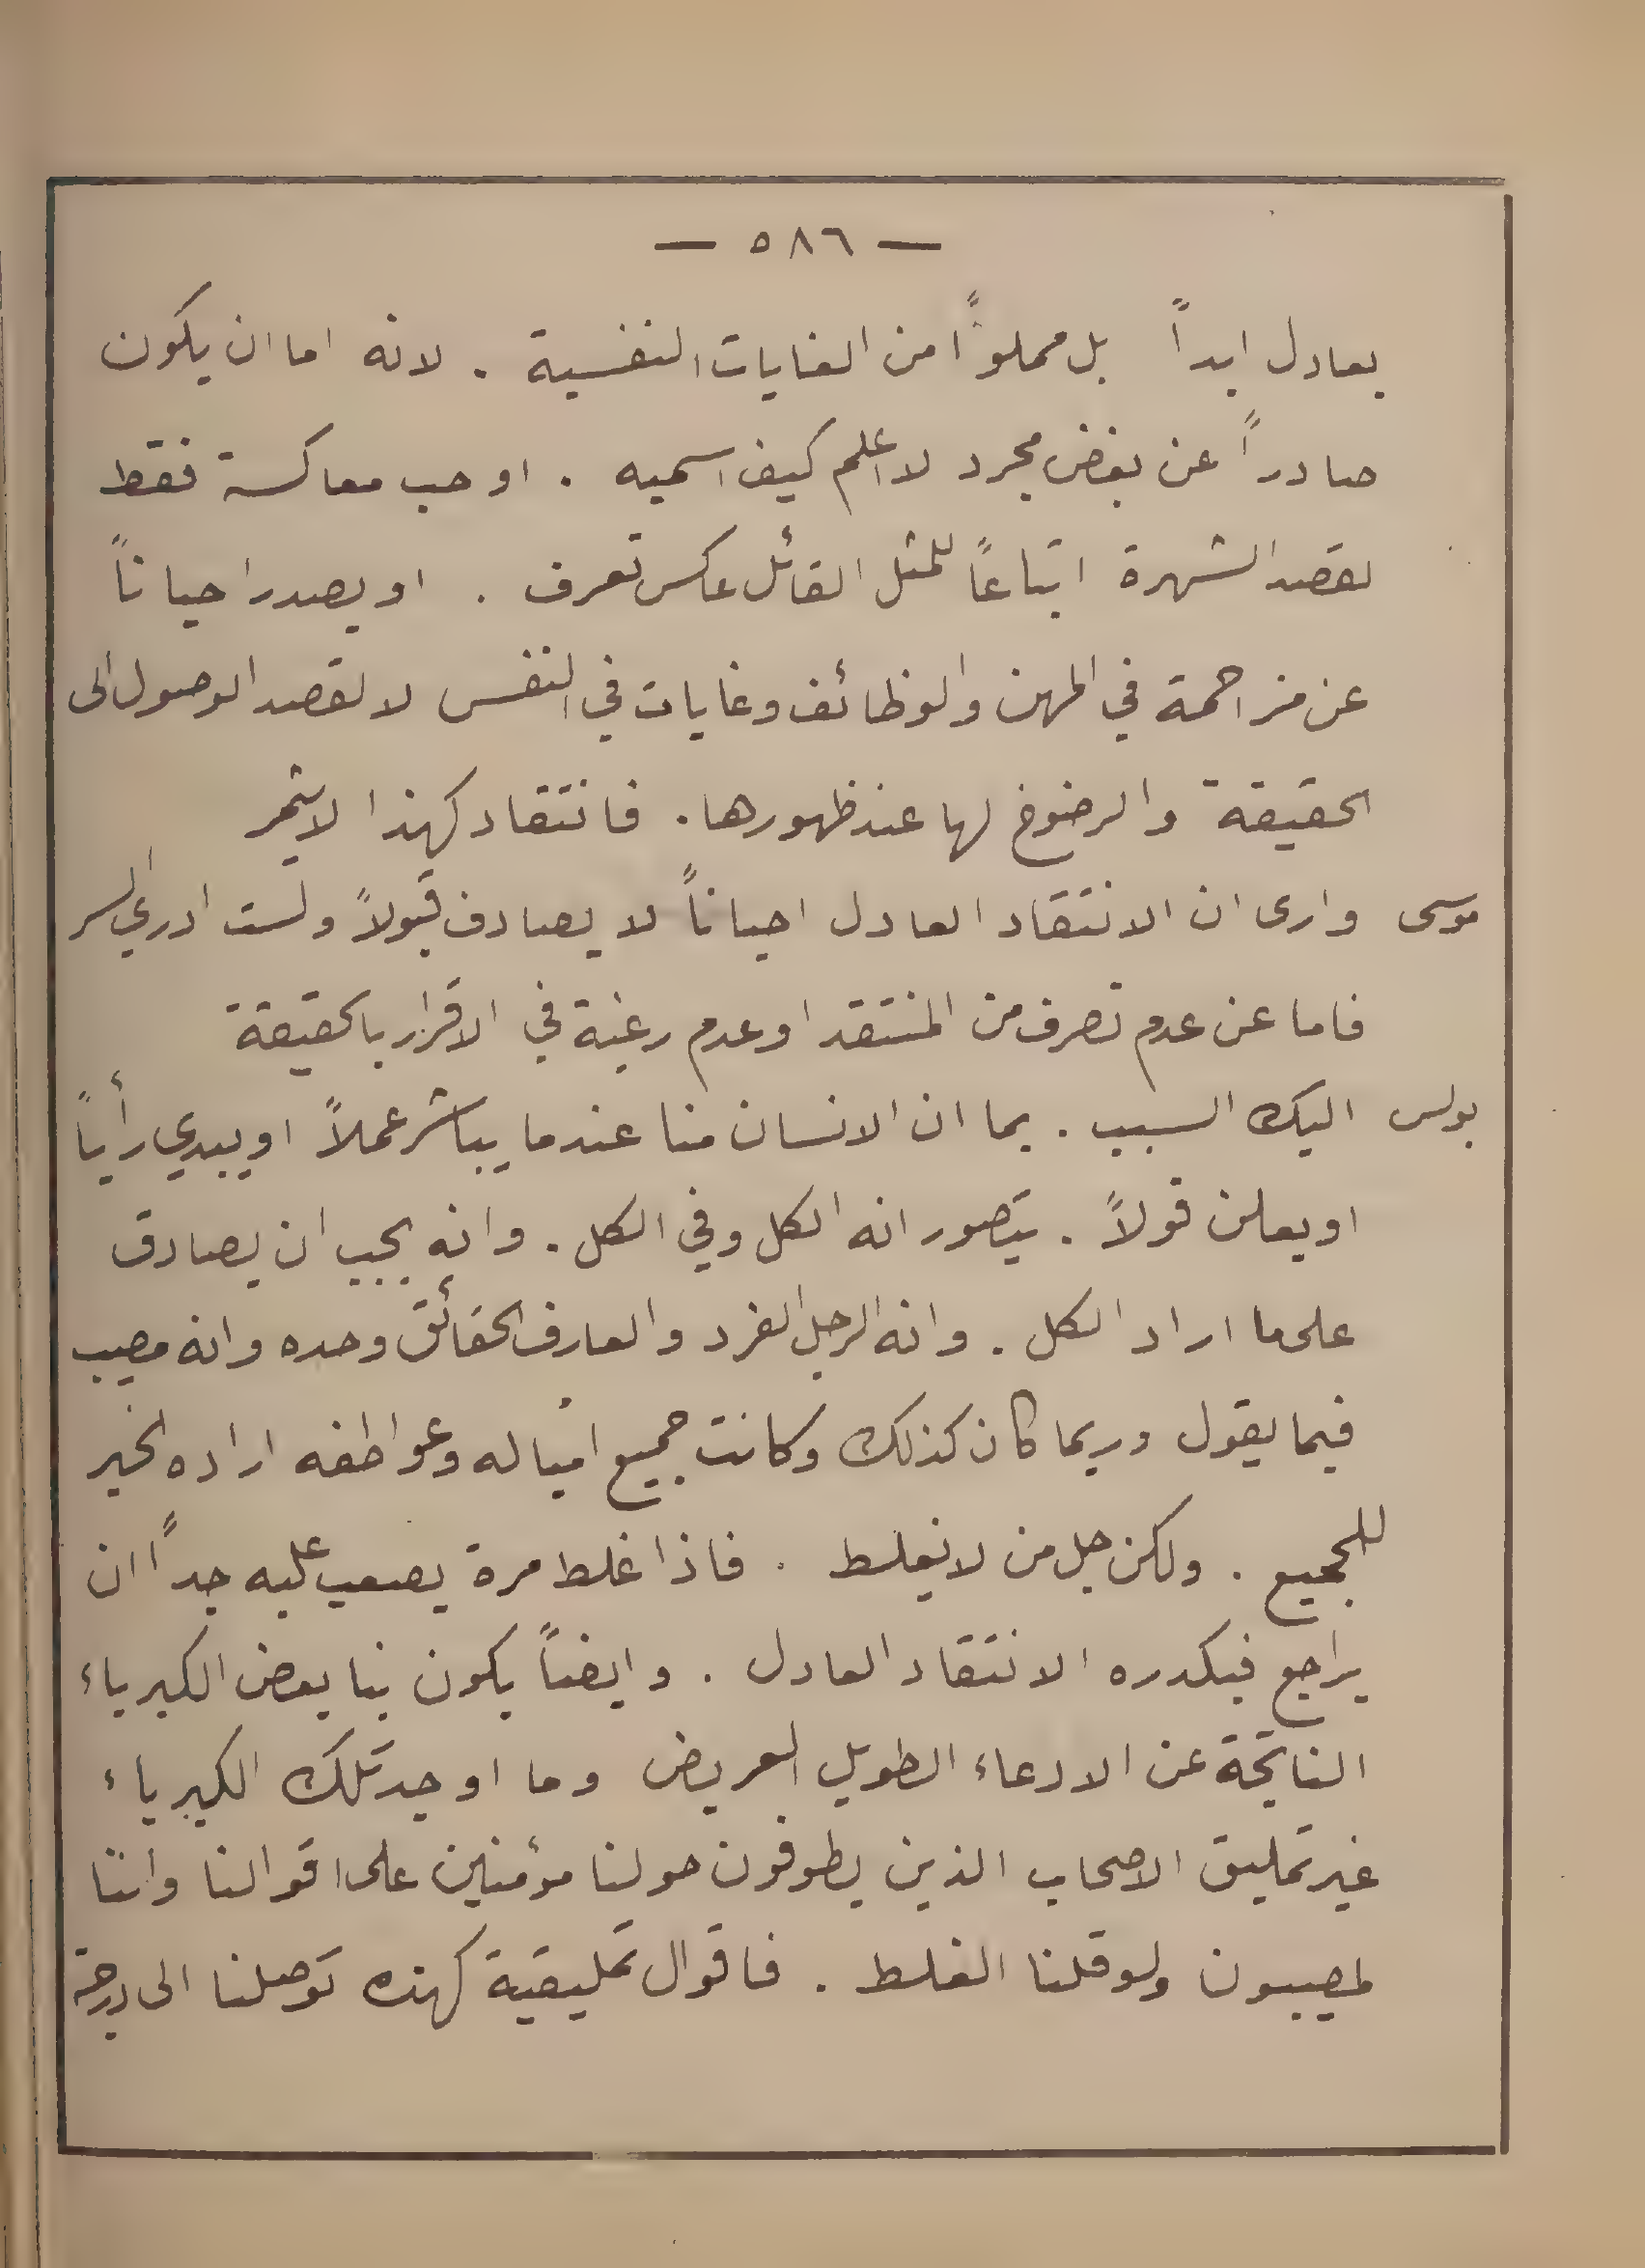 — ٥٨٦ —
بعادل ابداً بل مملوًّا من الغايات النفسية . لانه اما ان يكون
صادراً عن بغض مجرد لا اعلم كيف اسميه . او حب معاكسة فقط
لقصد الشهرة اتباعاً للمثل القائل عاكس تعرف . او يصدر احياناً
عن مزاحمة في المهن والوظائف وغايات في النفس لا لقصد الوصول الى
الحقيقة والرضوخ لها عند ظهورها . فانتقاد كهذا لا يثمر
موسى وارى ان الانتقاد العادل احياناً لا يصادف قبولاً ولست ادري السر
فاما عن عدم تصرف من المنتقد او عدم رغبة في الاقرار بالحقيقة
بولس اليك السبب . بما ان الانسان منا عندما يباشر عملاً او يبدي رأياً
او يعلن قولاً . يتصور انه الكل وفي الكل . وانه يجب ان يصادق
على ما اراد الكل . وانه الرجل الفرد والعارف الحقائق وحده وانه مصيب
فيما يقول وربما كان كذلك وكانت جميع امياله وعواطفه اراده الخير
للجميع . ولكن جل من لا يغلط . فاذا غلط مرة يصعب عليه جداً ان
يراجع فيكدره الانتقاد العادل . وايضاً يكون بنا بعض الكبرياء
الناتجة عن الادعاء الطويل العريض وما اوجد تلك الكبرياء
غير تمليق الاصحاب الذين يطوفون حولنا مؤمنين على اقوالنا واننا
مصيبون ولو قلنا الغلط . فاقوال تمليقية كهذه توصلنا الى درجة